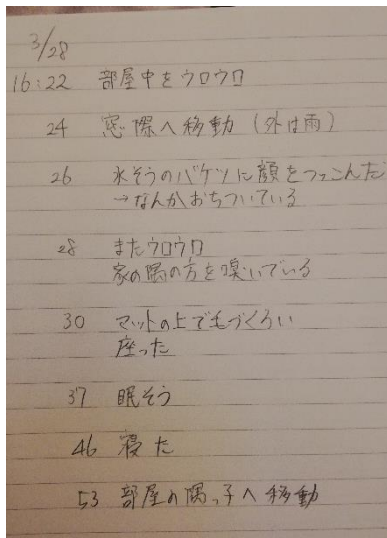 3/28
16:22 部屋中をウロウロ
24 窓際へ移動 (外は雨)
26 水そうのバケツに顔をつっこんだ
→なんかおちついている
28 またウロウロ
家の隅の方を嗅いでいる
30 マットの上で毛づくろい
座った
37 眠そう
46 寝た
53 部屋の隅っ子へ移動